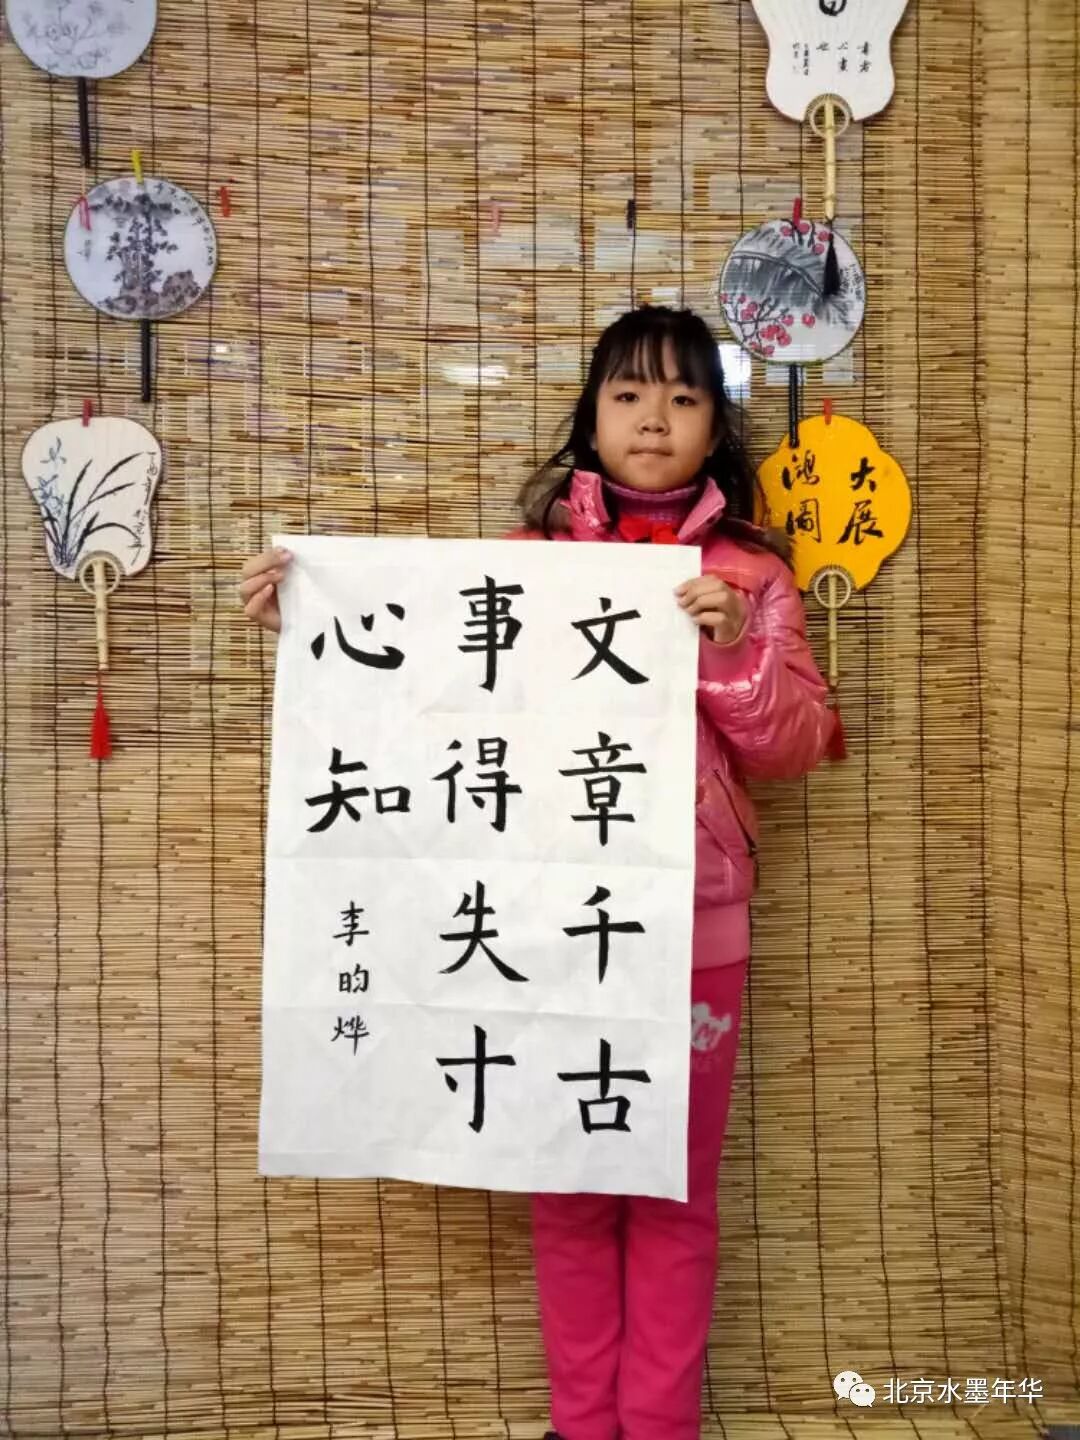 文章千古
事得失寸
心知
李昀烨
大展
鸿图
北京水墨年华